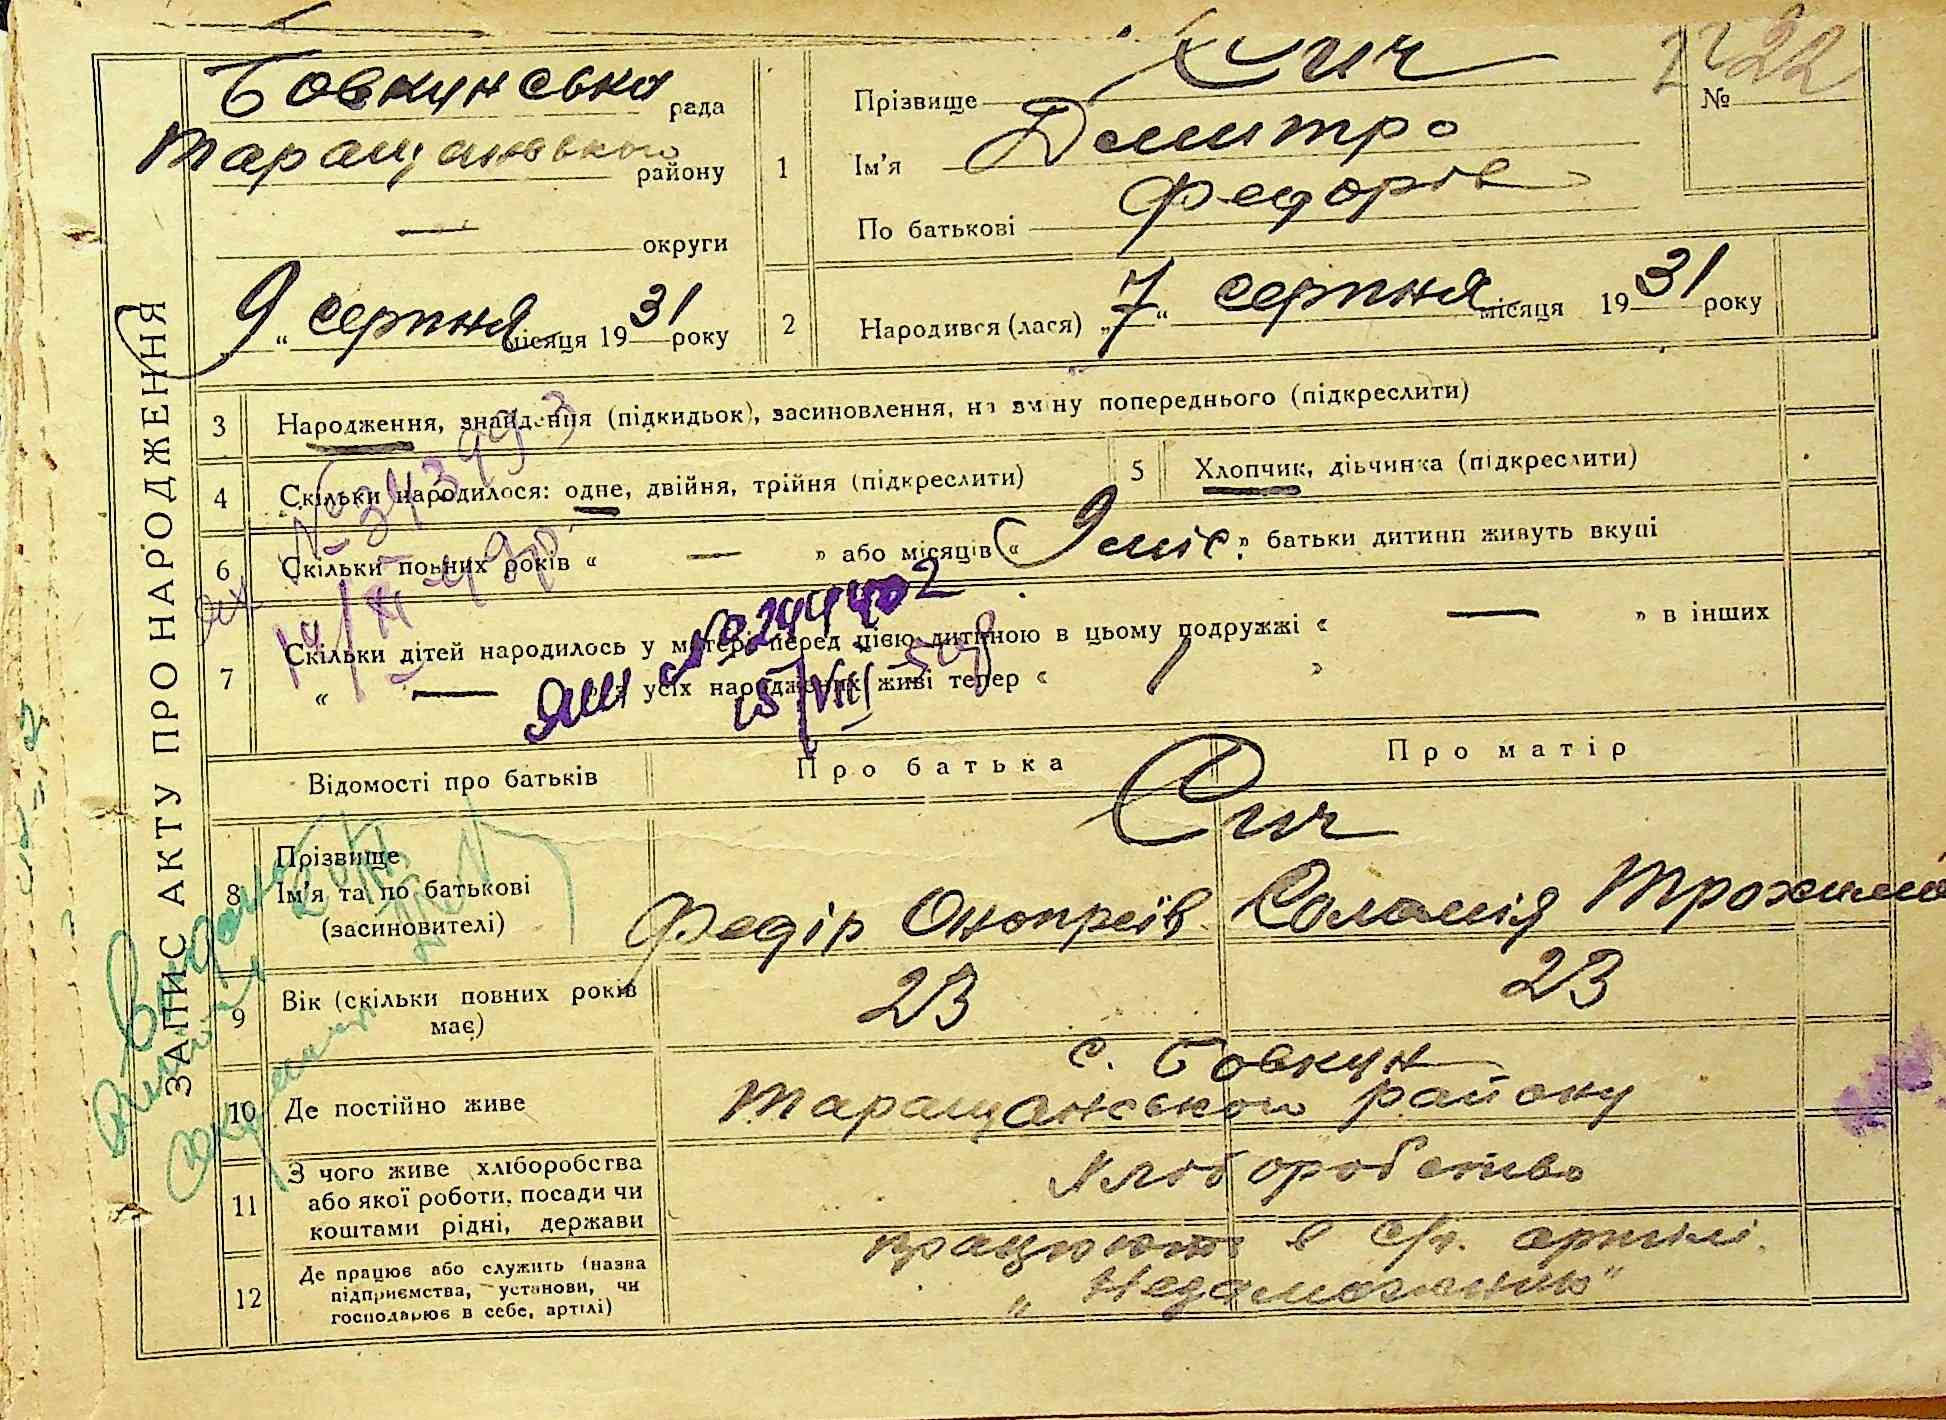 ЗАПИС АКТУ ПРО НАРОДЖЕННЯ
Бовкунська рада
Таращанського району
— округи
„9“ серпня місяця 1931 року
1
Прізвище Сич
Ім'я Дмитро
По батькові Федорів
№ 22
2
Народився (лася) „7“ серпня місяця 1931 року
3 Народження, знайдення (підкидьок), засиновлення, на зміну попереднього (підкреслити)
4 Скільки народилося: одне, двійня, трійня (підкреслити)
5 Хлопчик, дівчинка (підкреслити)
6 Скільки повних років « — » або місяців « 9 міс. » батьки дитини живуть вкупі
7 Скільки дітей народилось у матері перед цією дитиною в цьому подружжі « — » в інших
« — » з усіх народжених живі тепер « 1 »
№ 3439993
ЯШ № 244402
15/VIII
Відомості про батьків
Про батька
Про матір
8 Прізвище
Ім'я та по батькові
(засиновителі)
Сич
Федір Онопріїв
Соломія Трохимо
9 Вік (скільки повних років
має)
23
23
10 Де постійно живе
с. Бовкун
Таращанського району
11 З чого живе хліборобства
або якої роботи, посади чи
коштами рідні, держави
Хліборобство
12 Де працює або служить (назва
підприємства, установи, чи
господарює в себе, артілі)
працюють в с/г. артілі
„Недамоганню“